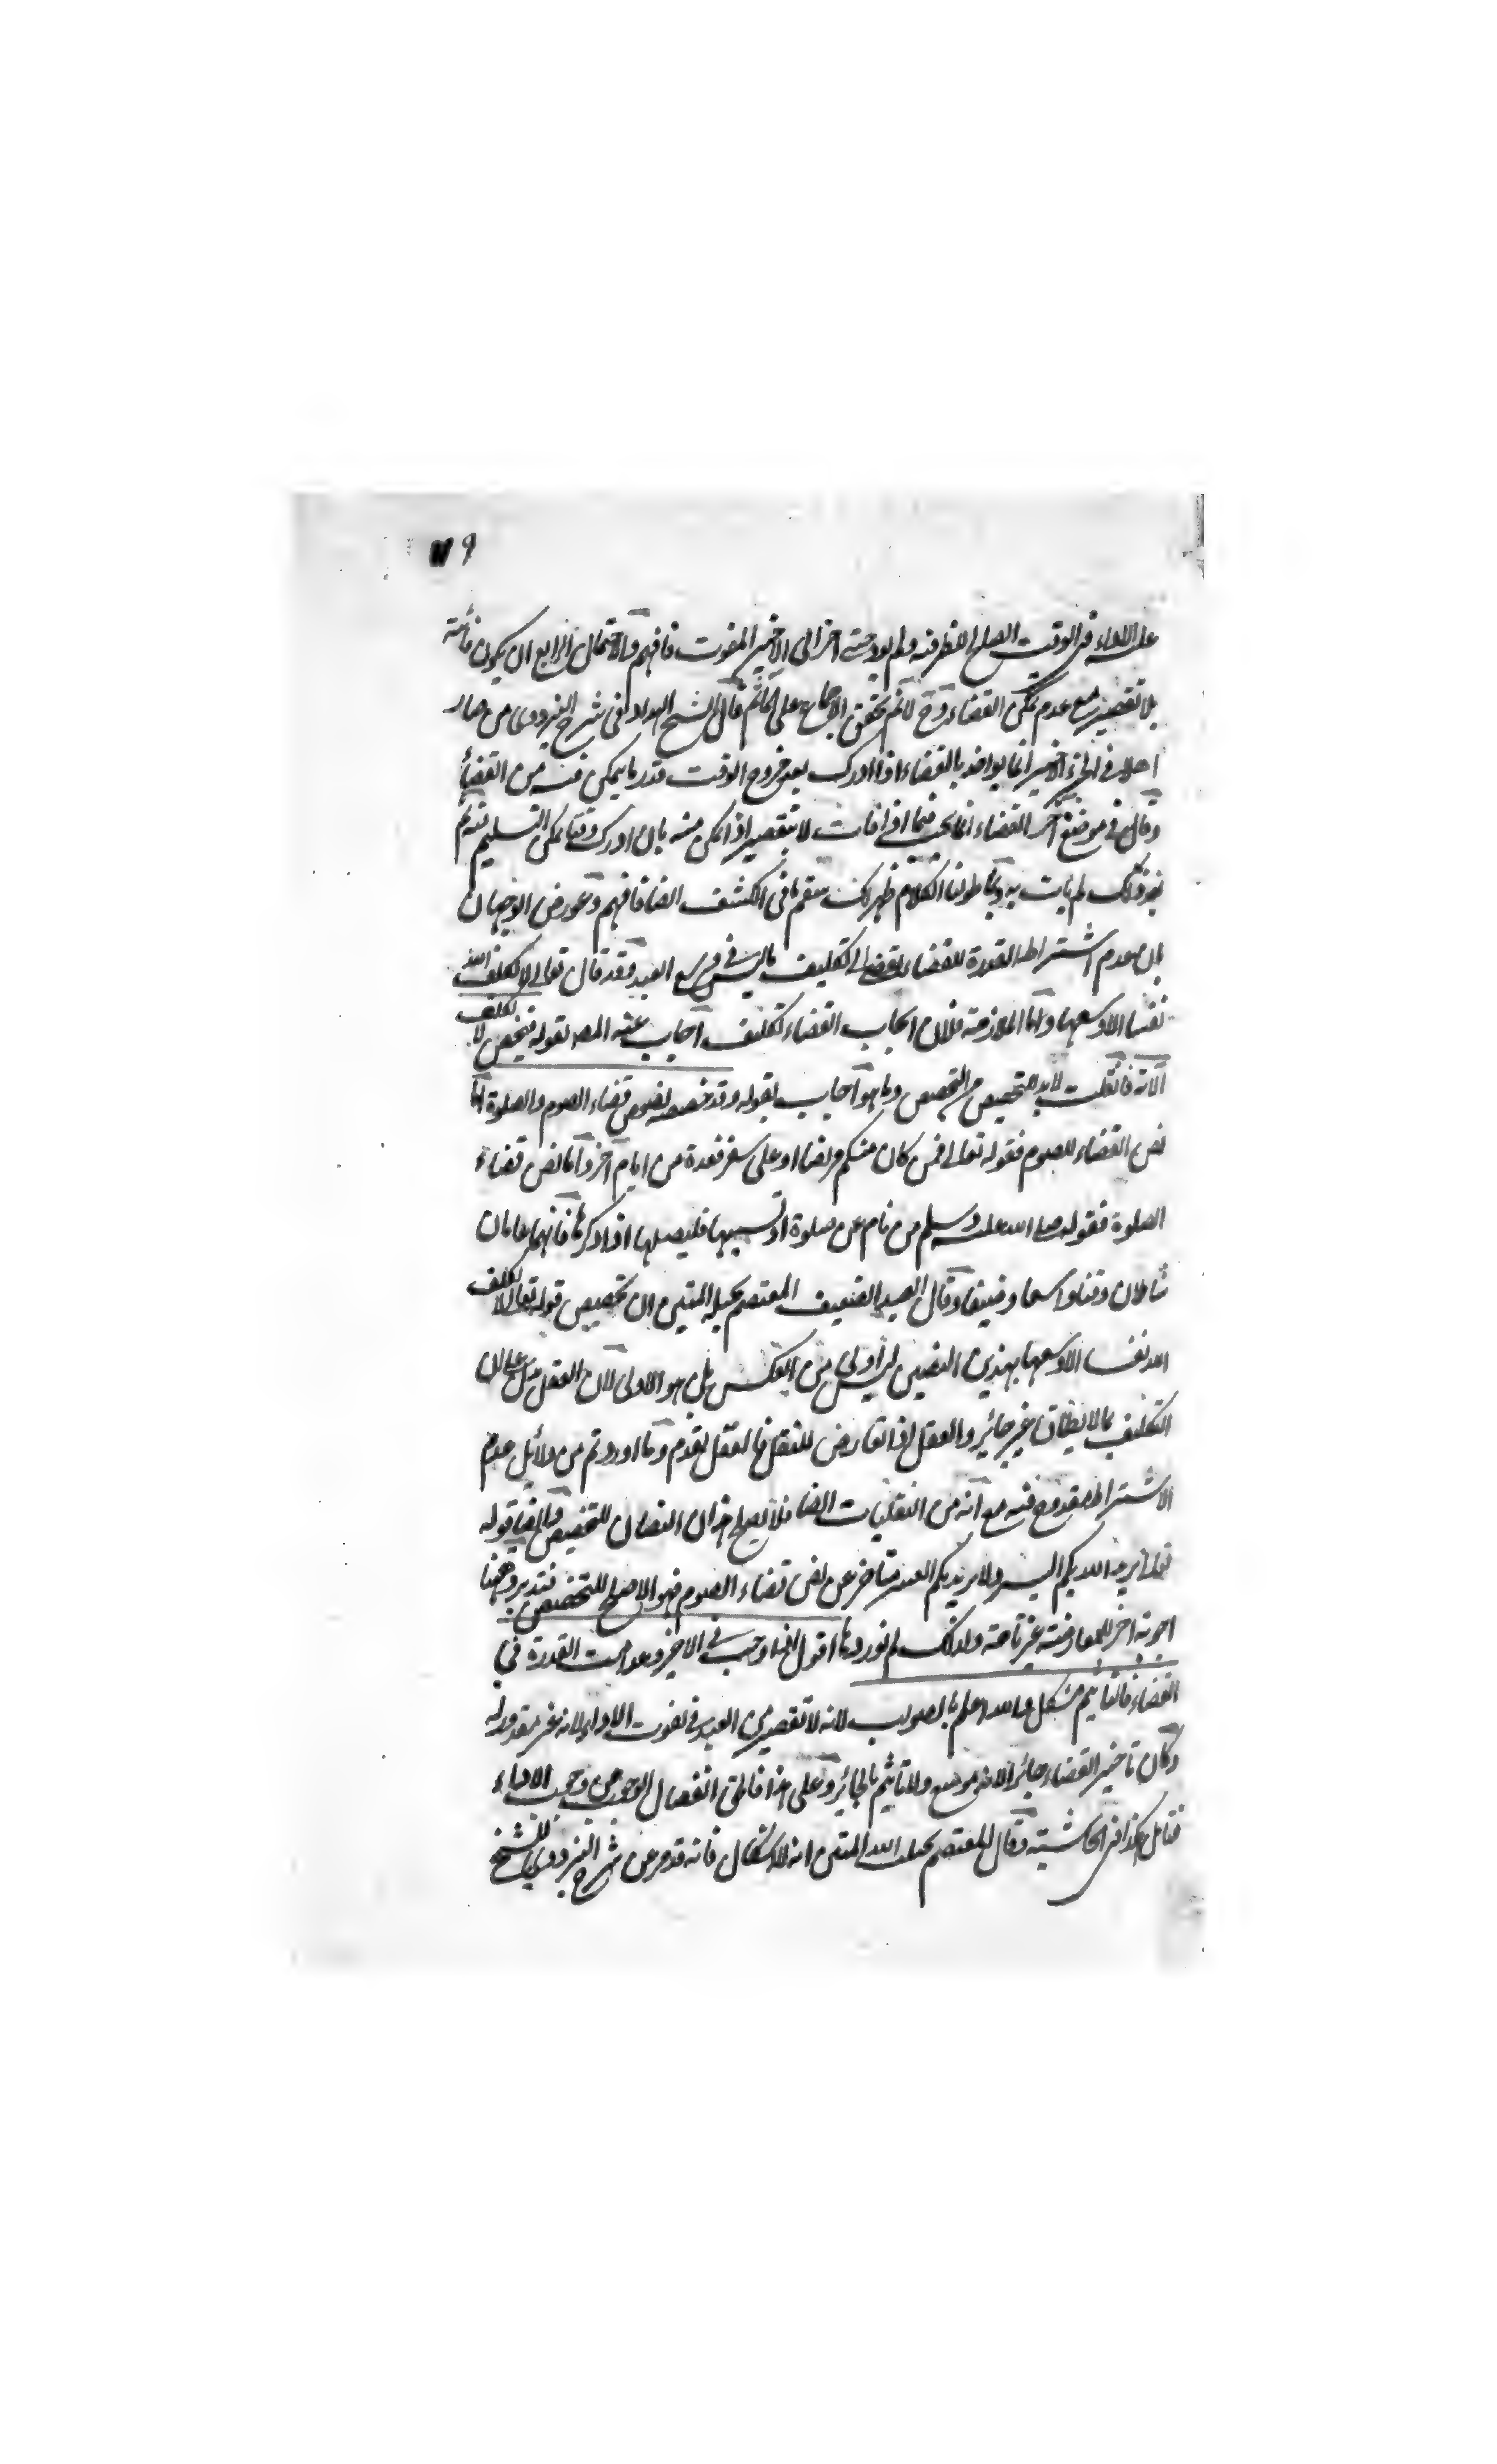 ٩
على الاداء فى الوقت الصالح للظرفية ولم يود حتى اخر الى الاخير المفوت فافهم والاحتمال الرابع ان يكون فائتة
بلا تقصير مع عدم تمكن القضاء وح لانم تحقق الاجماع على التأثم قال الشيخ الهداد فى شرح البزدوى من صار
اهلا فى الجزء الاخير انما يواخذ بالقضاء اذا ادرك بعد خروج الوقت قدر ما يمكن فيه من القضاء
وقال فى موضع آخر القضاء انما يجب فيما اذا فات لا بتقصير اذا تمكن منه بان ادرك وقتا يمكن التسليم فيه ثم
بعد ذلك لم يات به وبما طولنا الكلام ظهر لك سقم ما فى الكشف ايضا فافهم وعورض الوجهان
بان عدم اشتراط القدرة للقضاء يفضى الى تكليف ما ليس فى وسع العبد وقد قال تعالى لا يكلف الله
نفسا الا وسعها واما الملازمة فلان ايجاب القضاء تكليف اجاب عنه المصه بقوله فيخص لا يكلف
الآية فان قلت لابد للتخصيص من المخصص وما هو اجاب بقوله وقد خصصه نصوص قضاء الصوم والصلوة اما
نص القضاء للصوم فقوله تعالى فمن كان منكم مريضا او على سفر فعدة من ايام اخر واما نص قضاء
الصلوة فقوله صلى الله عليه وسلم من نام عن صلوة او نسيها فليصلها اذا ذكرها فانهما عامان
شاملان وقتا واسعا وضيقا وقال العبد الضعيف المعتصم بحبله المتين ان تخصيص قوله تعالى لا يكلف
الله نفسا الا وسعها بهذين النصين ليس اولى من العكس بل هو الاولى لان العقل يدل على ان
التكليف بما لا يطاق غير جائز والعقل اذا تعارض للنقل فالعقل يقدم وما اوردتم من دلائل عدم
الاشتراط مقدوح فيه مع انه من النقليات ايضا فلا يصلح هذان النصان للتخصيص وايضا قوله
تعالى يريد الله بكم اليسر ولا يريد بكم العسر متاخر عن نص قضاء الصوم فهو الاصلح للتخصيص فتدبر وههنا
اجوبة اخر للمعارضة غير تامة ولذلك لم نوردها اقول اذا وجب فى الاخير وعدمت القدرة فى
القضاء فالتاثيم مشكل والله اعلم بالصواب لانه لا تقصير من العبد فى تفويت الاداء لانه غير مقدور له
وكان تاخير القضاء جائزا لانه موسع ولا تاثيم بالجائز وعلى هذا فالحق انفصال الوجوب عن وجوب الاداء
فتامل هكذا فى الحاشية وقال المعتصم بحبل الله المتين انه لا اشكال فانه قد مر عن شرح البزدوى للشيخ